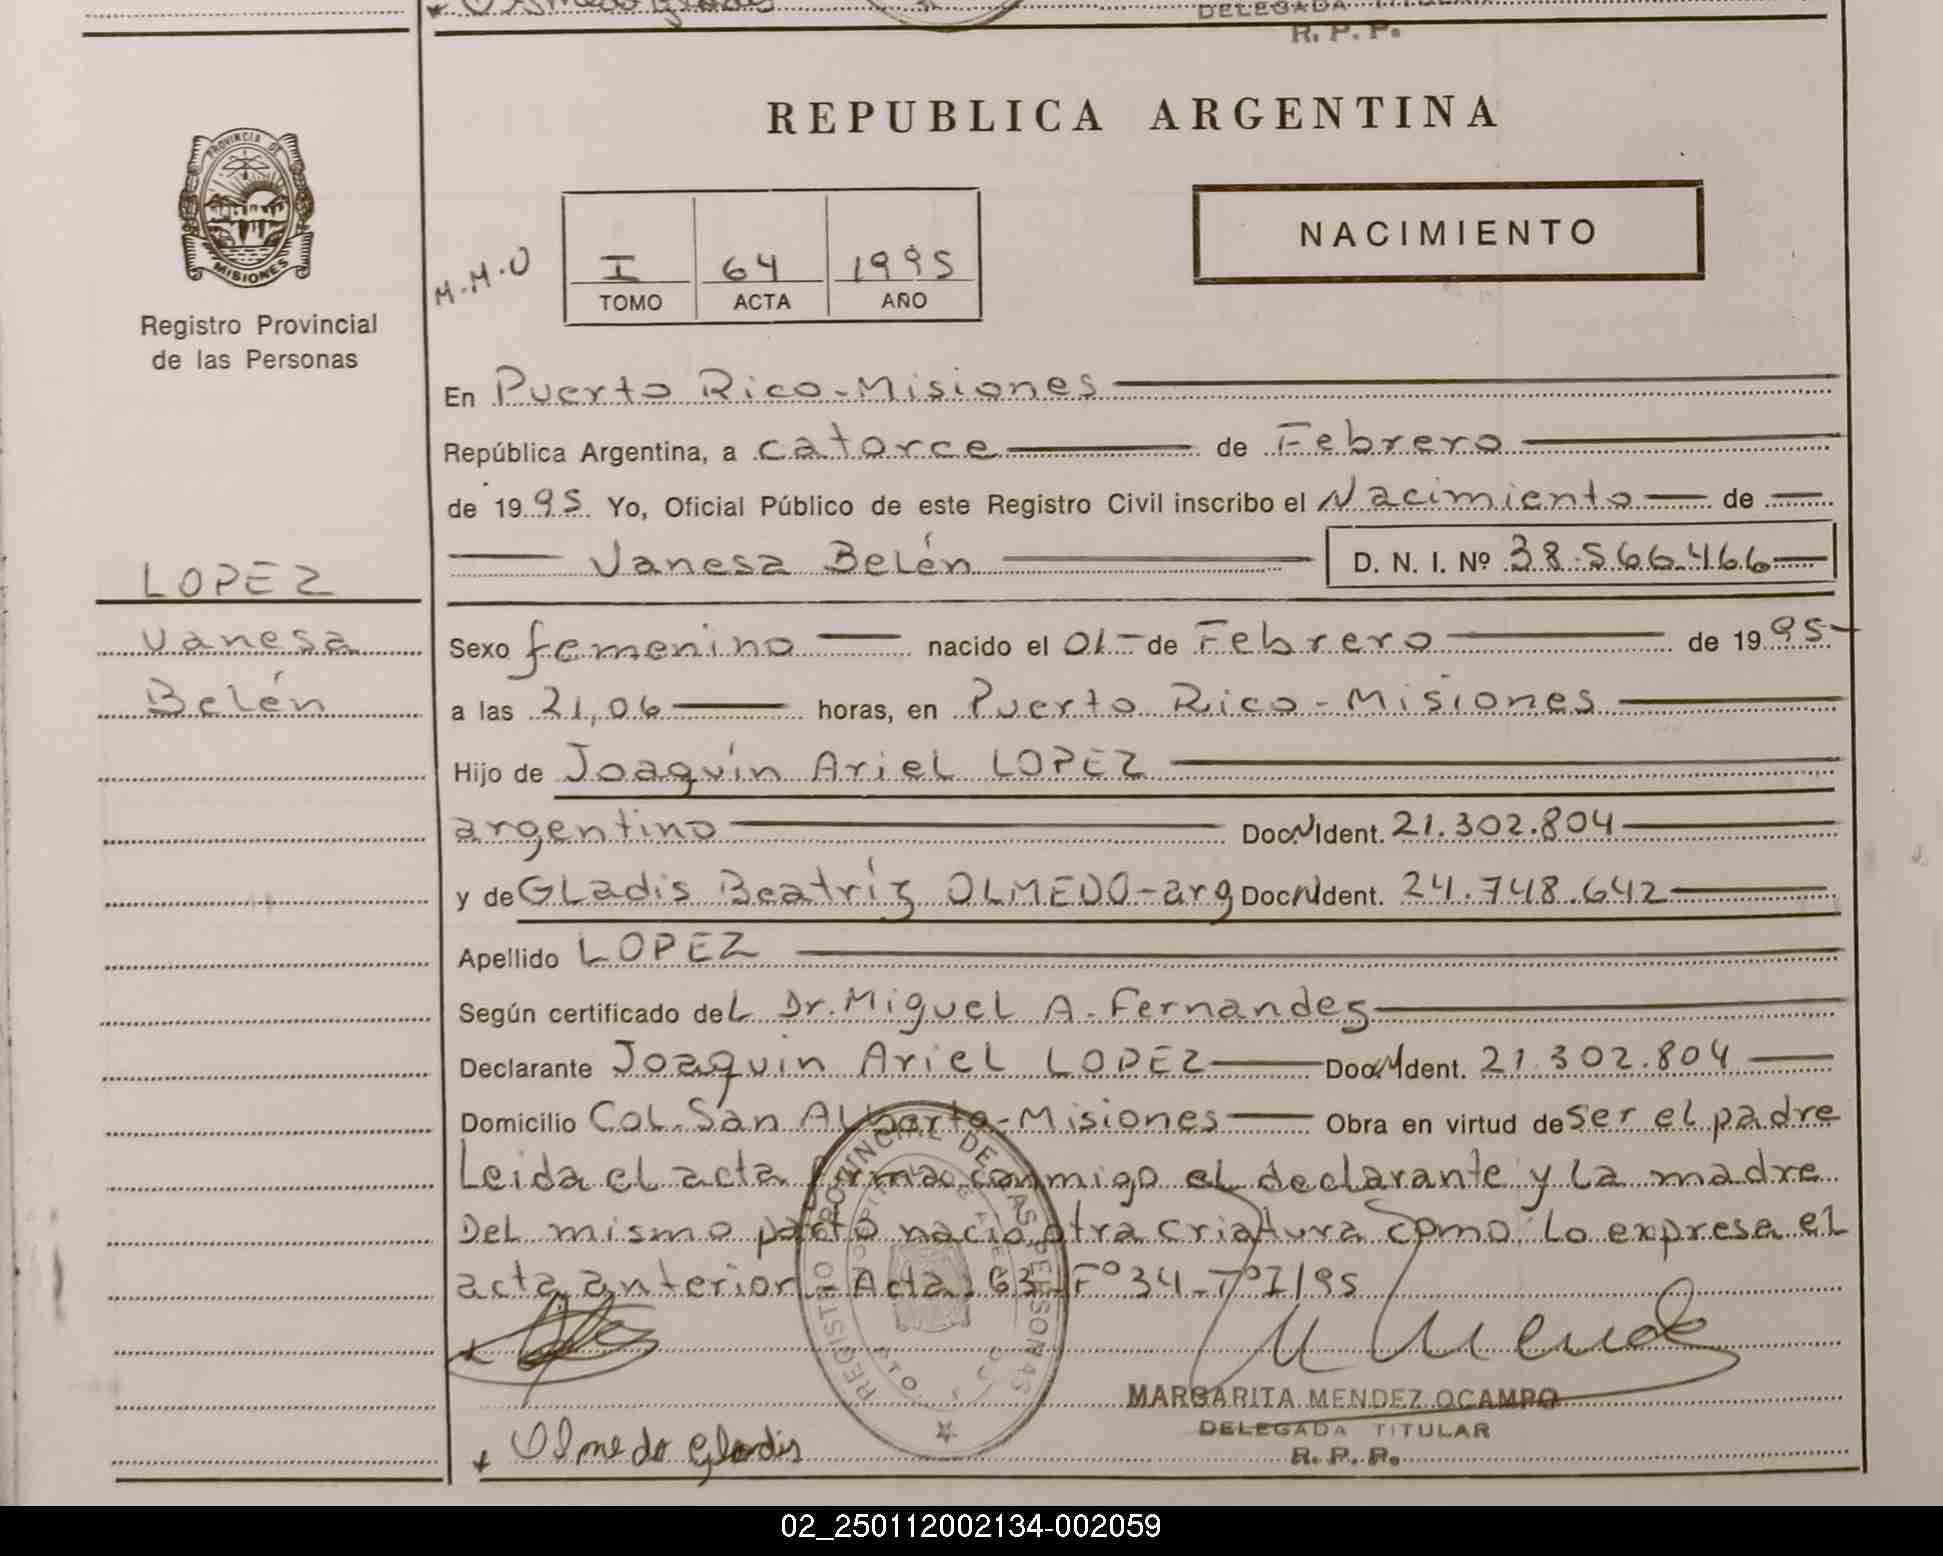 DELEGADA TITULAR
R. P. P.
PROVINCIA DE
MISIONES
Registro Provincial
de las Personas
REPUBLICA ARGENTINA
NACIMIENTO
M.M.O
I 64 1995
TOMO ACTA AÑO
En Puerto Rico-Misiones
República Argentina, a catorce de Febrero
de 1995 Yo, Oficial Público de este Registro Civil inscribo el Nacimiento de
Vanesa Belén D. N. I. Nº 38.566.466
LOPEZ
Vanesa
Belén
Sexo femenino nacido el 01 de Febrero de 1995
a las 21,06 horas, en Puerto Rico-Misiones
Hijo de Joaquín Ariel LOPEZ
argentino Doc.N.Ident. 21.302.804
y de Gladis Beatríz OLMEDO-arg Doc.N.Ident. 24.748.642
Apellido LOPEZ
Según certificado del Dr. Miguel A. Fernandez
Declarante Joaquin Ariel LOPEZ Doc.N.Ident. 21.302.804
Domicilio Col. San Alberto-Misiones Obra en virtud de ser el padre
Leida el acta firma conmigo el declarante y la madre
Del mismo parto nacio otra criatura como lo expresa el
acta anterior - Acta 63-Fº34-TºI/95
REGISTRO PROVINCIAL DE LAS PERSONAS
M Mende
MARGARITA MENDEZ OCAMPO
DELEGADA TITULAR
R. P. P.
x Olmedo Gladis
02_250112002134-002059